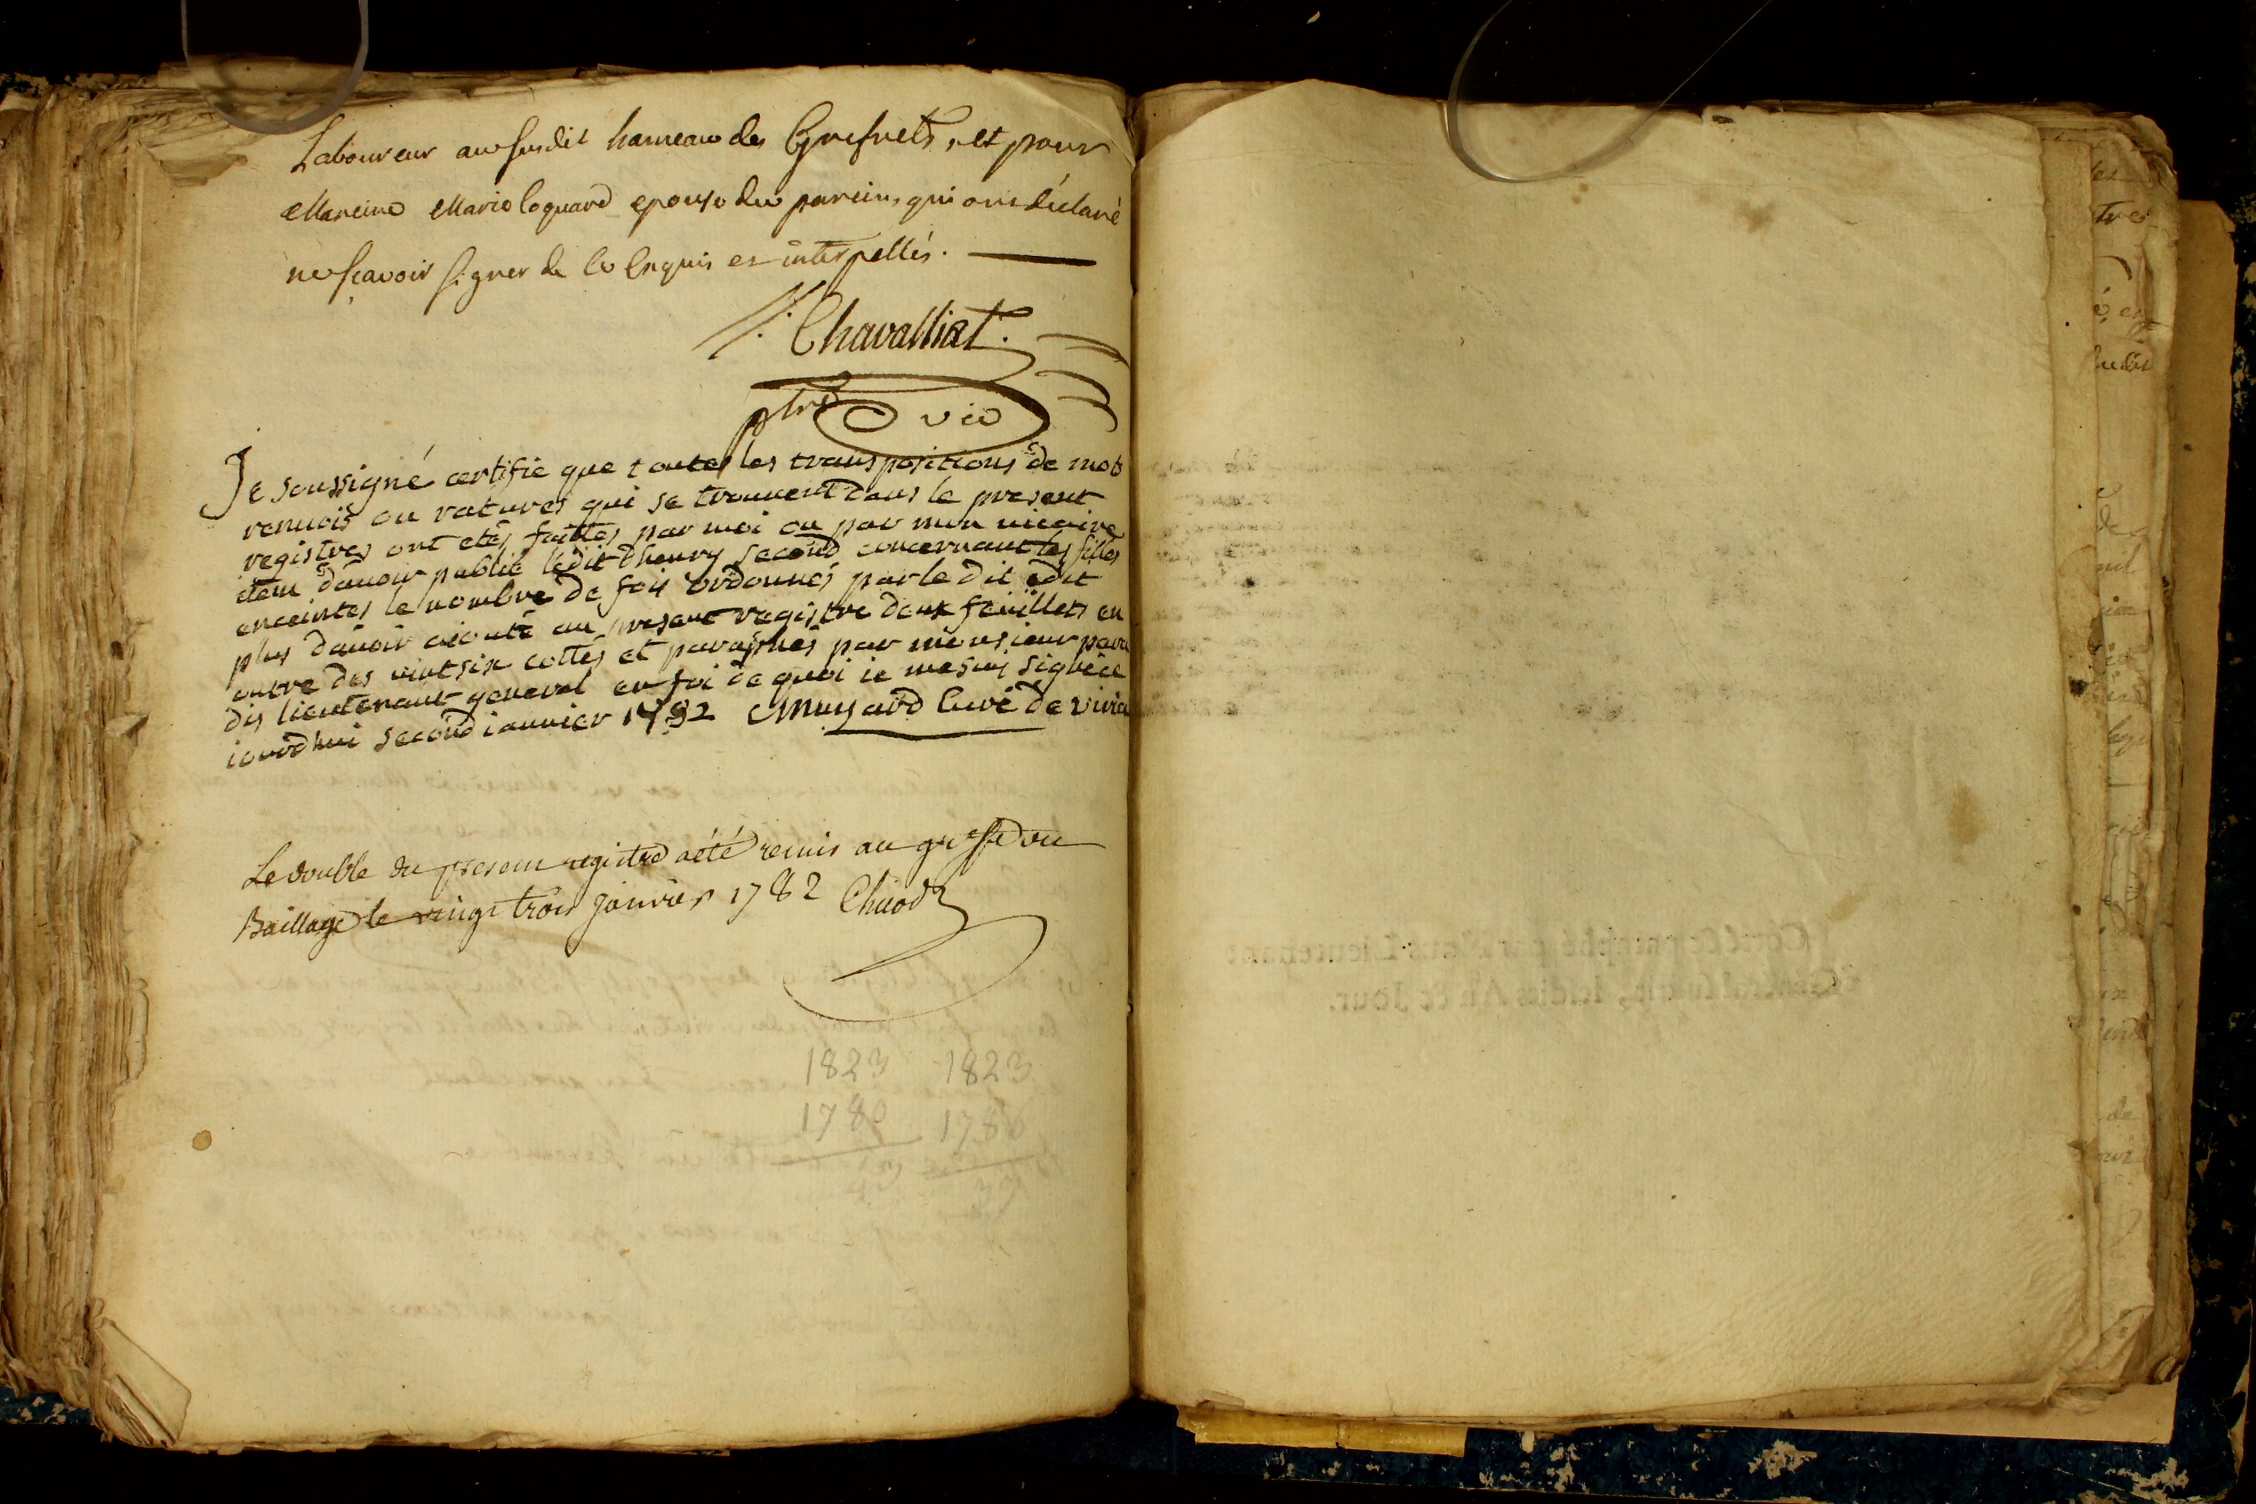 Laboureur au susdit hameau des Grifnets, et pour
Mareine Marie Coquard epouse du parein, qui ont déclaré
ne sçavoir signer de ce Enquis et interpellés.
Chavalliat
ptre vic
Je soussigné certifie que toutes les transpositions de mots
renuois ou ratures qui se trouuent dans le present
registres ont etés faittes par moi ou par mon uicaire
item d'auoir publié l'edit d'henry second concernant les filles
enceintes le nombre de fois ordonnés par le dit edit
plus d'auoir aiouté au present registre deux feuillets en
outre des vint six cottés et paraphés par monsieur para
dis lieutenant general en foi de quoi ie me suis signé ce
iourd'hui second ianuier 1782 Muyard Curé de
Le double du present registre a été remis au greffe du
Baillage le vingt trois janvier 1782
1823 1823
1780 1786
43 37
Cotté & paraphé par Nous Lieutenant
Général susdit, lesdits An & Jour.